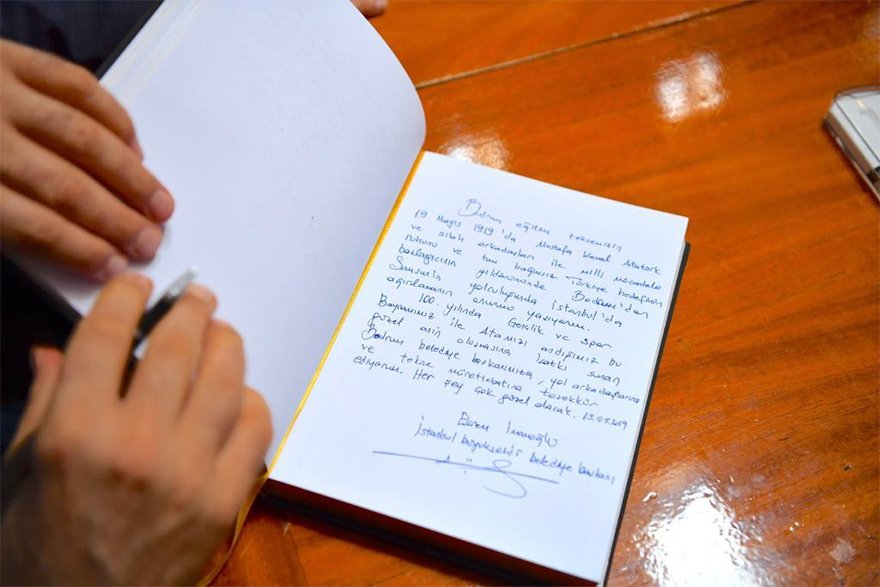 Bodrum eğitim teknemizin
19 Mayıs 1919'da Mustafa Kemal Atatürk
ve silah arkadaşları ile milli mücadele
ruhunu ve tam bağımsız Türkiye hedefinin
başlagıcının yıldönümünde Bodrum'dan
Samsun'a yolculuğunda İstanbul'da
ağırlamanın onurunu yaşıyorum.
100. yılında Gençlik ve spor
Bayramımız ile Atamızı andığımız bu
güzel anın oluşmasına katkı sunan
Bodrum belediye başkanımıza, yol arkadaşlarına
ve tekne mürettebatına teşekkür
ediyorum. Her şey çok güzel olacak. 15.05.2019
Ekrem İmamoğlu
İstanbul büyükşehir belediye başkanı